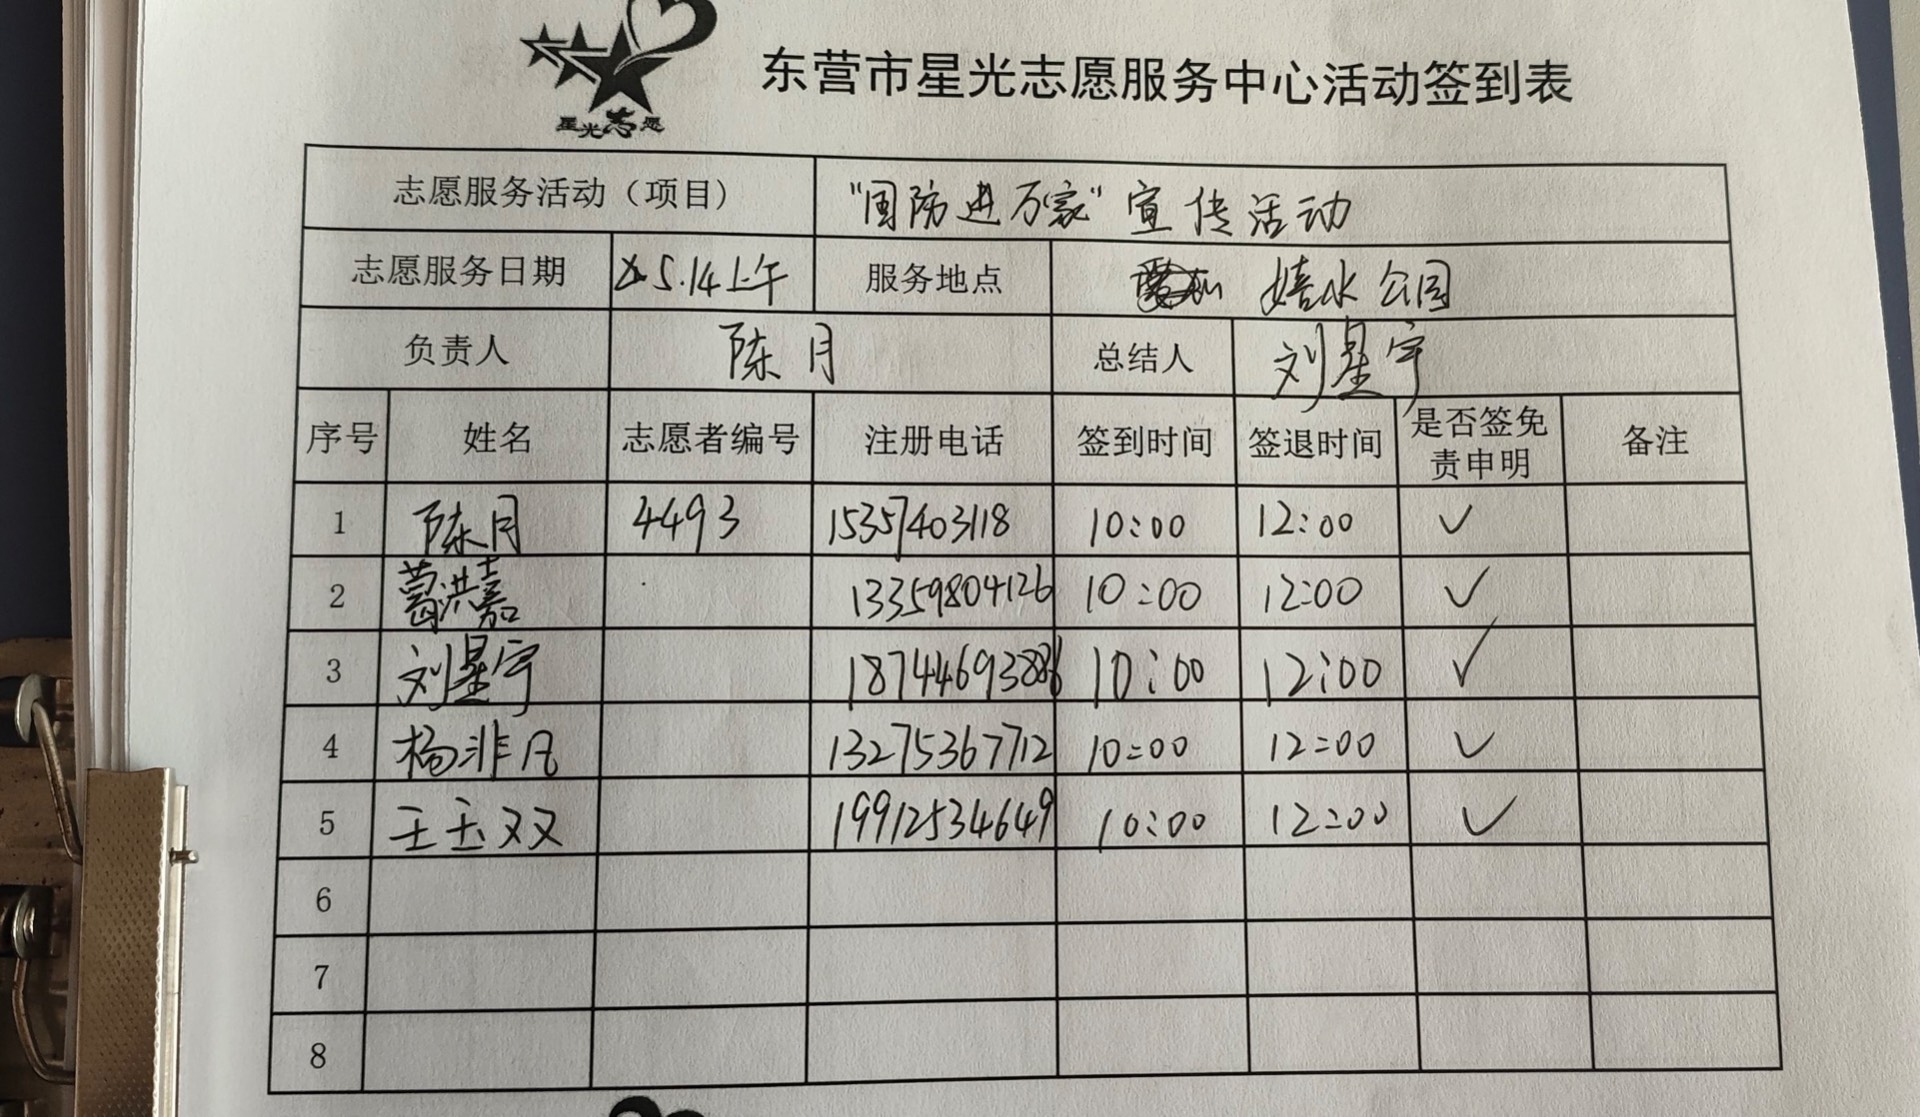 星光志愿
东营市星光志愿服务中心活动签到表
志愿服务活动（项目） "国防进万家"宣传活动
志愿服务日期 5.14上午 服务地点 嬉水公园
负责人 陈月 总结人 刘星宇
序号 姓名 志愿者编号 注册电话 签到时间 签退时间 是否签免责申明 备注
1 陈月 4493 15357403118 10:00 12:00 ✓
2 葛洪嘉 13359804126 10:00 12:00 ✓
3 刘星宇 10:00 12:00 ✓
4 杨非凡 13275367712 10:00 12:00 ✓
5 王玉双 19912534649 10:00 12:00 ✓
6
7
8